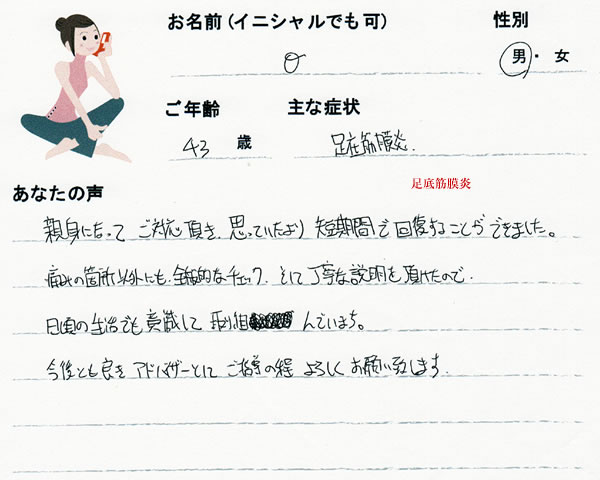 お名前(イニシャルでも可)
性別
O
男・女
ご年齢
主な症状
43 歳
足底筋膜炎.
足底筋膜炎
あなたの声
親身になって ご対応頂き、思っていたより 短期間で回復することができました。
痛みの箇所以外にも、全般的なチェック、そして丁寧な説明を頂けたので、
日頃の生活でも意識して 取り組んでいます。
今後とも良きアドバイザーとして ご指導の程 よろしくお願い致します.